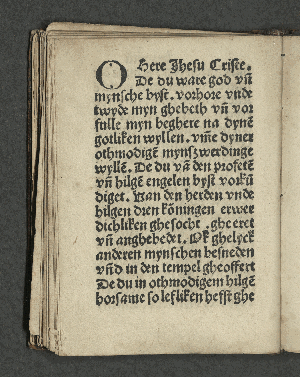 O Here Jhesu Criste.
De du ware god vñ
mynsche byst. vorhore vnde
twyde myn ghebeth vñ vor
fulle myn beghere na dynē
gotliken wyllen. vm̄e dyner
othmodigē mynszwerdinge
wyllē. De du vā den profetē
vñ hilgē engelen byst vorkū
diget. Van den herden vnde
hilgen dren köningen erwer
dichliken ghesocht. gheeret
vñ angbebedet. Ok ghelyck
anderen mynschen besneden
vñd in den tempel gheoffert
De du in othmodigem hilgē
horsame so lefliken hefft ghe